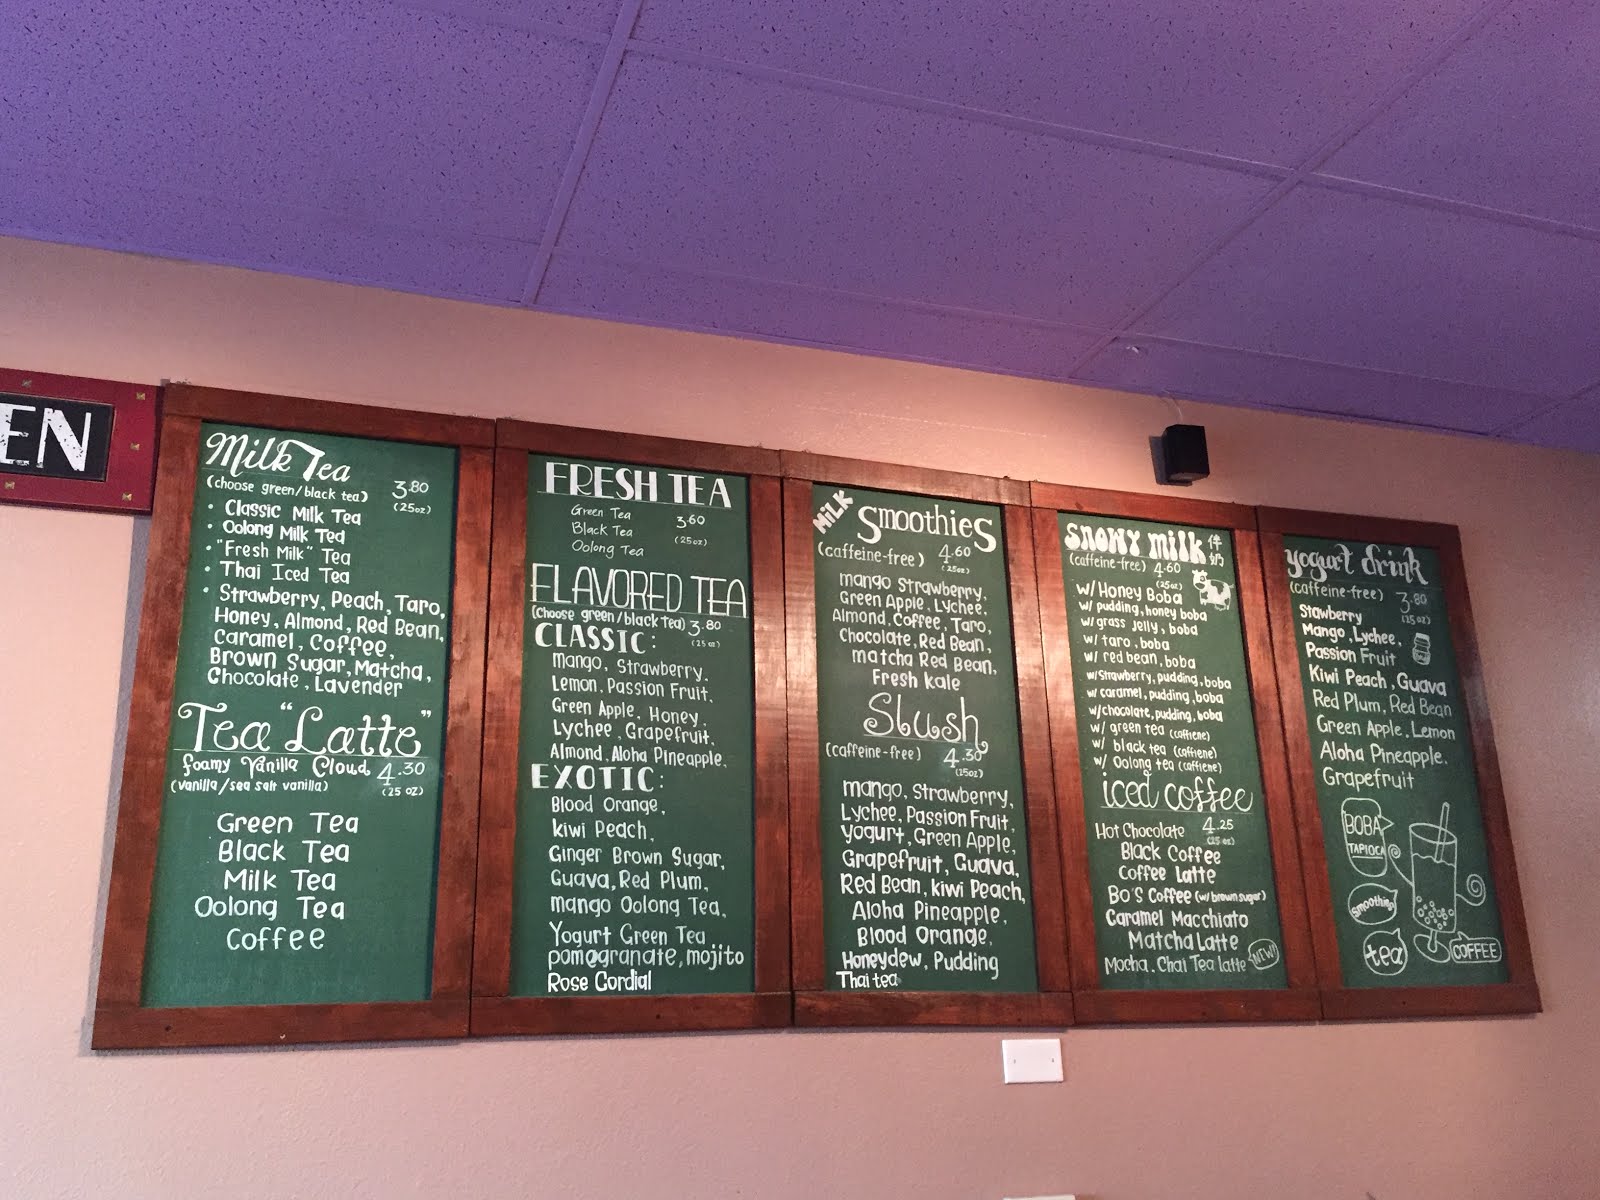 EN
Milk Tea
(choose green/black tea) 3.80
(25oz)
• Classic Milk Tea
• Oolong Milk Tea
• "Fresh Milk" Tea
• Thai Iced Tea
• Strawberry, Peach, Taro,
Honey, Almond, Red Bean,
Caramel, Coffee,
Brown Sugar, Matcha,
Chocolate, Lavender
Tea "Latte"
foamy Vanilla Cloud 4.30
(vanilla/sea salt vanilla) (25 oz)
Green Tea
Black Tea
Milk Tea
Oolong Tea
Coffee
FRESH TEA
Green Tea
Black Tea 3.60
(25oz)
Oolong Tea
FLAVORED TEA
(Choose green/black tea) 3.80
(25 oz)
CLASSIC:
mango, Strawberry,
Lemon, Passion Fruit,
Green Apple, Honey,
Lychee, Grapefruit,
Almond, Aloha Pineapple,
EXOTIC:
Blood Orange,
kiwi Peach,
Ginger Brown Sugar,
Guava, Red Plum,
mango Oolong Tea,
Yogurt Green Tea
pomegranate, mojito
Rose Cordial
MILK Smoothies
(caffeine-free) 4.60
(25oz)
mango Strawberry,
Green Apple, Lychee,
Almond, Coffee, Taro,
Chocolate, Red Bean,
matcha Red Bean,
Fresh kale
Slush
(caffeine-free) 4.30
(25oz)
mango, Strawberry,
Lychee, Passion Fruit,
yogurt, Green Apple,
Grapefruit, Guava,
Red Bean, kiwi Peach,
Aloha Pineapple,
Blood Orange,
Honeydew, Pudding
Thai tea
SNOWY MILK
(caffeine-free) 4.60
(25oz)
w/ Honey Boba
w/ pudding, honey boba
w/ grass jelly, boba
w/ taro, boba
w/ red bean, boba
w/ strawberry, pudding, boba
w/ caramel, pudding, boba
w/ chocolate, pudding, boba
w/ green tea (caffiene)
w/ black tea (caffiene)
w/ Oolong tea (caffiene)
iced coffee
Hot Chocolate 4.25
(25 oz)
Black Coffee
Coffee Latte
Bo's Coffee (w/ brown sugar)
Caramel Macchiato
Matcha Latte
Mocha, Chai Tea latte NEW!
yogurt drink
(caffeine-free) 3.80
(25oz)
Stawberry
Mango, Lychee,
Passion Fruit
Kiwi Peach, Guava
Red Plum, Red Bean
Green Apple, Lemon
Aloha Pineapple,
Grapefruit
BOBA
TAPIOCA
Smoothies
tea
COFFEE